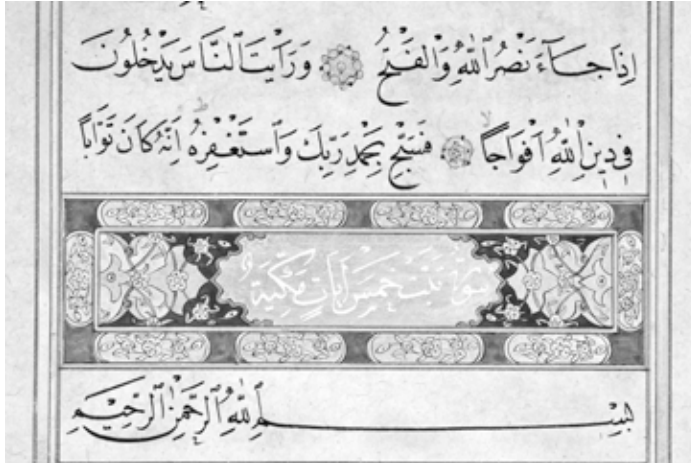 اِذَا جَٓاءَ نَصْرُ اللّٰهِ وَالْفَتْحُ وَرَاَيْتَ النَّاسَ يَدْخُلُونَ
فِى دِينِ اللّٰهِ اَفْوَاجًا فَسَبِّحْ بِحَمْدِ رَبِّكَ وَاسْتَغْفِرْهُ اِنَّهُ كَانَ تَوَّابًا
سورة تبت خمس اٰيات مكية
بِسْمِ اللّٰهِ الرَّحْمٰنِ الرَّحِيمِ